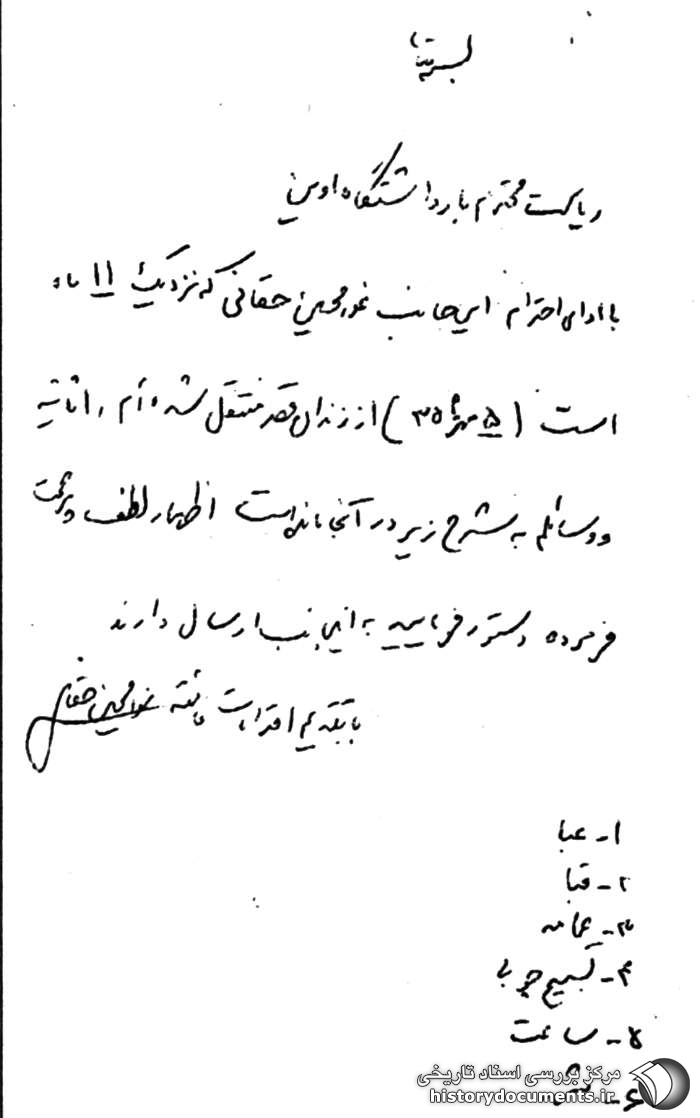 بسمه تعالی
ریاست محترم بازداشتگاه اوین
با ادای احترام این جانب غلامحسین حقانی که نزدیک ۱۱ ماه
است (۵ مهر ۳۵) از زندان قصر منتقل شده‌ام و اثاثیه
و وسائلم به شرح زیر در آنجا مانده است اظهار لطف و مرحمت
فرموده دستور فرمایید به این جانب ارسال دارند
با تقدیم احترامات فائقه غلامحسین حقانی
۱- عبا
۲- قبا
۳- عمامه
۴- تسبیح چوبی
۵- ساعت
۶-
مرکز بررسی اسناد تاریخی
historydocuments.ir